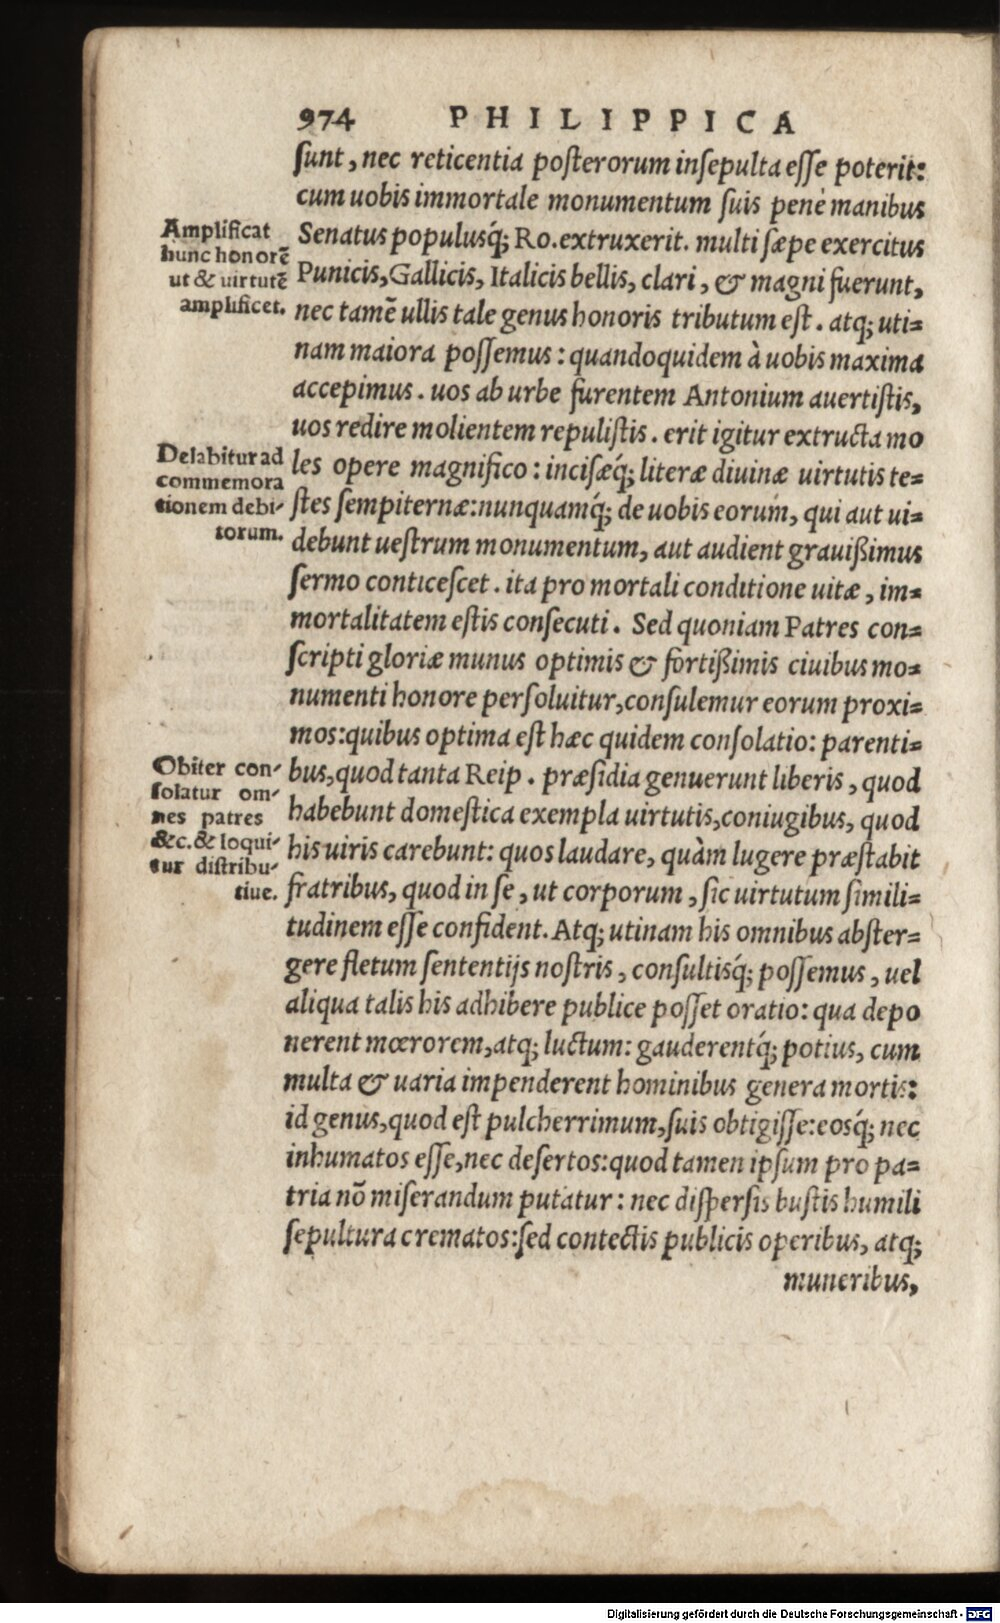 974 PHILIPPICA
sunt, nec reticentia posterorum insepulta esse poterit:
cum uobis immortale monumentum suis penè manibus
Senatus populusq́; Ro. extruxerit. multi sæpe exercitus
Punicis, Gallicis, Italicis bellis, clari, & magni fuerunt,
nec tamē ullis tale genus honoris tributum est. atq; uti=
nam maiora possemus: quandoquidem à uobis maxima
accepimus. uos ab urbe furentem Antonium auertistis,
uos redire molientem repulistis. erit igitur extructa mo
les opere magnifico: incisæq́; literæ diuinæ uirtutis te=
stes sempiternæ: nunquamq́; de uobis eorum, qui aut ui=
debunt uestrum monumentum, aut audient grauißimus
sermo conticescet. ita pro mortali conditione uitæ, im=
mortalitatem estis consecuti. Sed quoniam Patres con=
scripti gloriæ munus optimis & fortißimis ciuibus mo=
numenti honore persoluitur, consulemur eorum proxi=
mos: quibus optima est hæc quidem consolatio: parenti=
bus, quod tanta Reip. præsidia genuerunt liberis, quod
habebunt domestica exempla uirtutis, coniugibus, quod
his uiris carebunt: quos laudare, quàm lugere præstabit
fratribus, quod in se, ut corporum, sic uirtutum simili=
tudinem esse confident. Atq; utinam his omnibus abster=
gere fletum sententijs nostris, consultisq́; possemus, uel
aliqua talis his adhibere publice posset oratio: qua depo
nerent mœrorem, atq; luctum: gauderentq́; potius, cum
multa & uaria impenderent hominibus genera mortis:
id genus, quod est pulcherrimum, suis obtigisse: eosq́; nec
inhumatos esse, nec desertos: quod tamen ipsum pro pa=
tria nō miserandum putatur: nec dispersis bustis humili
sepultura crematos: sed contectis publicis operibus, atq;
muneribus,
Amplificat
hunc honorē
ut & uirtutē
amplificet.
Delabitur ad
commemora
tionem debi-
torum.
Obiter con-
solatur om-
nes patres
&c. & loqui-
tur distribu-
tiue.
Digitalisierung gefördert durch die Deutsche Forschungsgemeinschaft - DFG